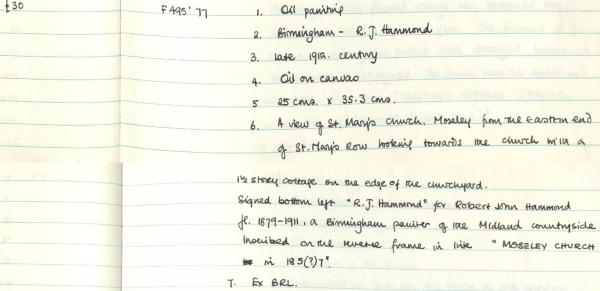 £30 F495'77 1. Oil painting
2. Birmingham - R. J. Hammond
3. late 19th. century
4. Oil on canvas
5 25 cms. x 35.3 cms.
6. A view of St. Mary's Church, Moseley from the Eastern end
of St. Mary's Row looking towards the church with a
1½ story cottage on the edge of the churchyard.
Signed bottom left "R. J. Hammond" for Robert John Hammond
fl. 1879-1911, a Birmingham painter of the Midland countryside
Inscribed on the reverse frame in ink "MOSELEY CHURCH
in 185(?)7".
7. Ex BRL.